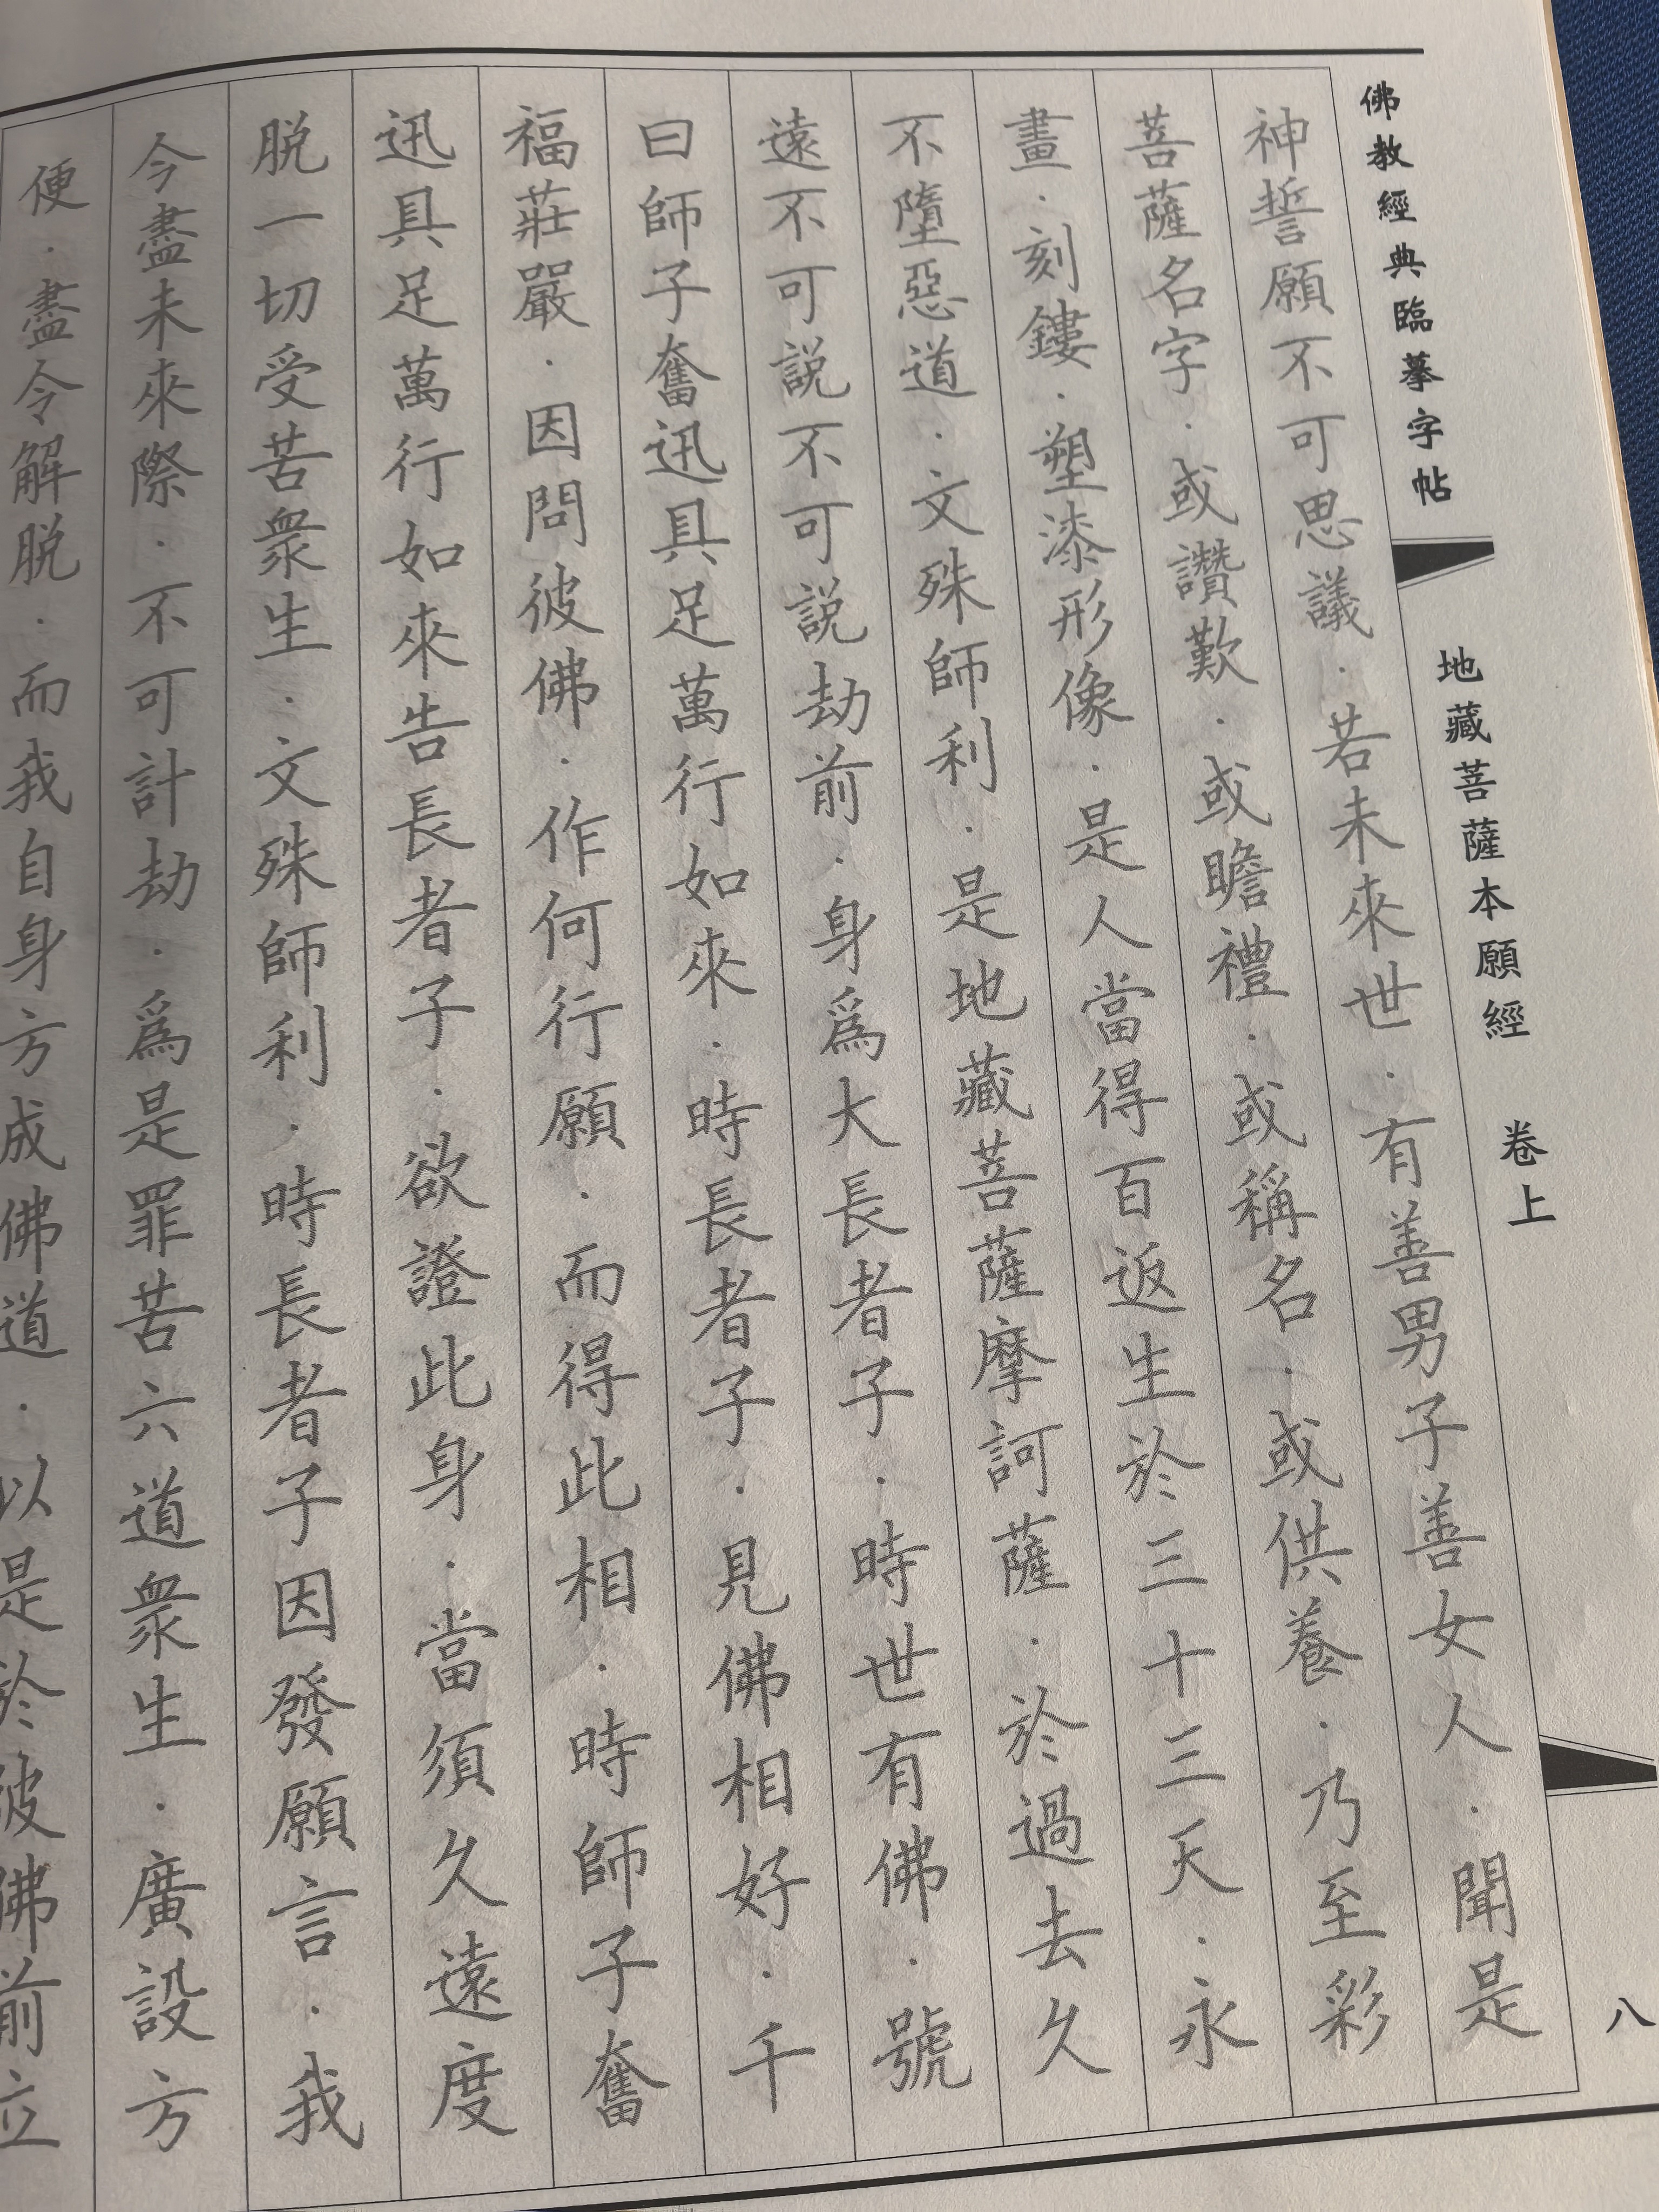 佛教經典臨摹字帖
地藏菩薩本願經 卷上
八
神誓願不可思議．若未來世．有善男子善女人．聞是
菩薩名字．或讚歎．或瞻禮．或稱名．或供養．乃至彩
畫．刻鏤．塑漆形像．是人當得百返生於三十三天．永
不墮惡道．文殊師利．是地藏菩薩摩訶薩．於過去久
遠不可説不可説劫前．身爲大長者子．時世有佛．號
曰師子奮迅具足萬行如來．時長者子．見佛相好．千
福莊嚴．因問彼佛．作何行願．而得此相．時師子奮
迅具足萬行如來告長者子．欲證此身．當須久遠度
脱一切受苦衆生．文殊師利．時長者子因發願言．我
今盡未來際．不可計劫．爲是罪苦六道衆生．廣設方
便．盡令解脱．而我自身方成佛道．以是於彼佛前立